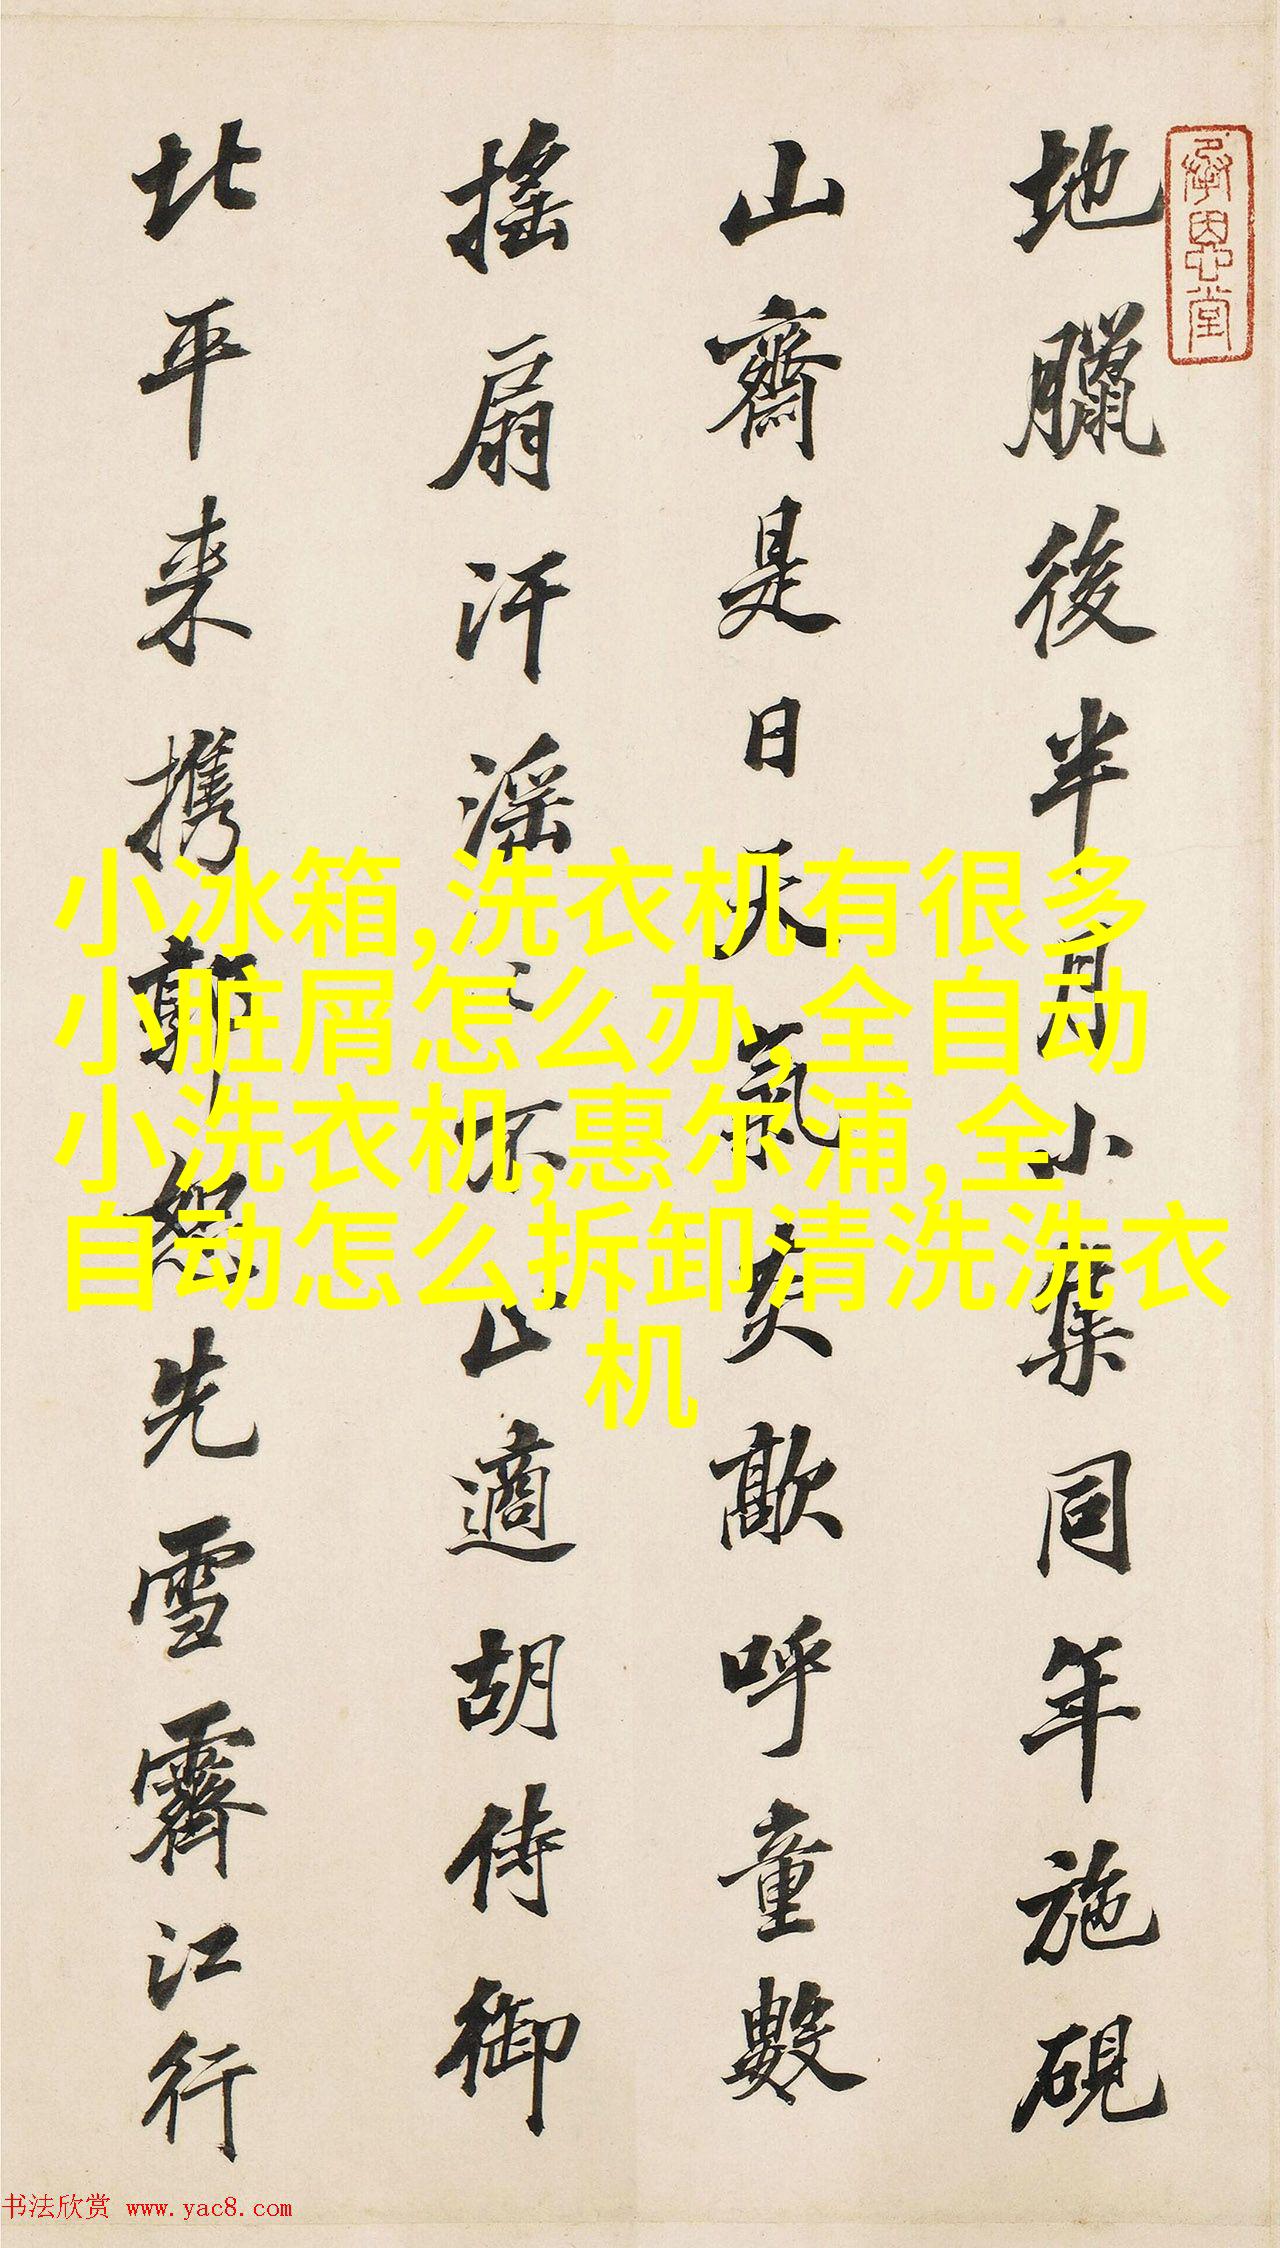 承恩堂
地臘後半月小集同年施硯
山齋是日天氣炎歊呼童數
搖扇汗淫〻不止適胡侍御
北平来携郭恕先雪霽江行
小冰箱,洗衣机有很多
小脏屑怎么办,全自动
小洗衣机,惠尔浦,全
自动怎么拆卸清洗洗衣
机
书法欣赏 www.yac8.com